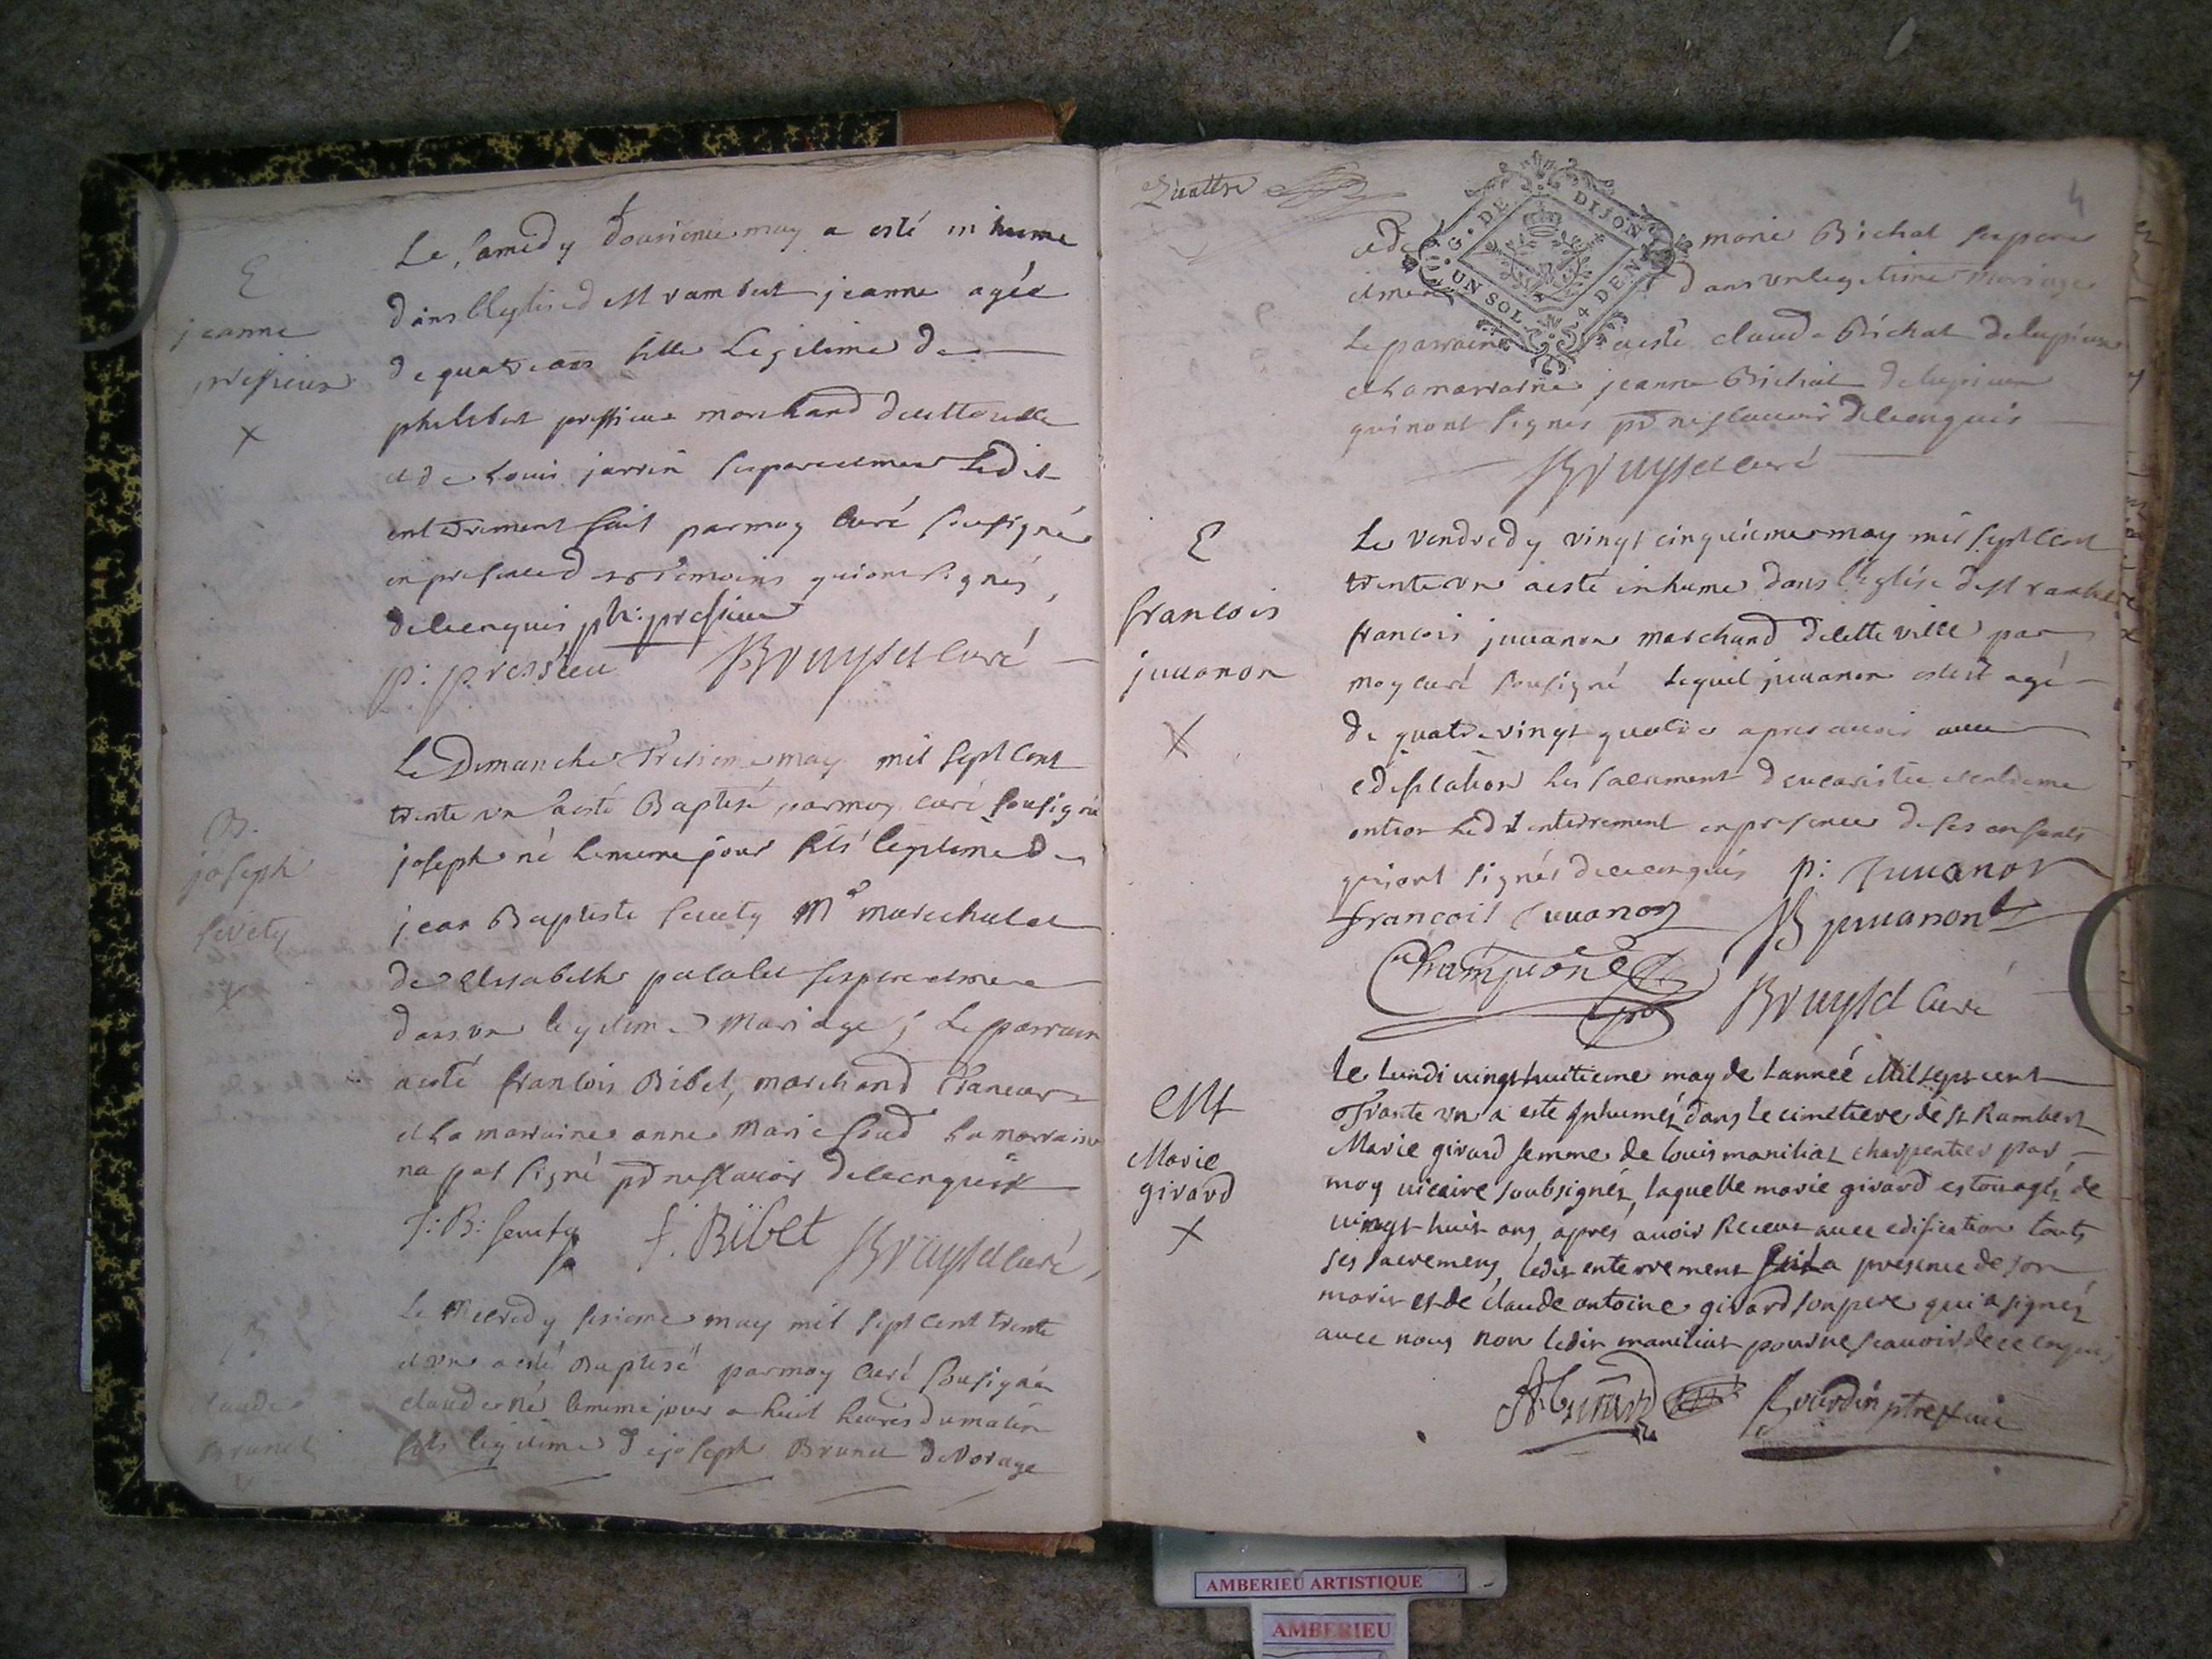 E
jeanne
pressieux
x
Le samedy dousieme may a esté inhume
dans lleglise de st rambert jeanne agée
de quatre ans fille legitime de
philibert pressieux marchand de cette ville
et de Louise jarrin ses pere et mere ledit
enterrement fait par moy curé sousigné
en presence des temoins qui ont signés,
de ce enquis ph: pressieux
p: pressieu Bruyset curé
B.
joseph
sevety
x
Le Dimanche Tresieme may mil sept cent
trente un a esté Baptisé par moy curé sousigné
joseph né le meme jour fils legitime de
jean Baptiste sevety Me marechal et
de Elisabeth palalet ses pere et mere
dans un legitime Mariage, Le parrain
a esté francois Bibet, marchand Taneur
et La marraine anne Marie La marraine
na pas signé pr ne scavoir de ce enquis
J: B: sevety f. Bibet Bruyset curé,
B
claude
Brunet
Le Mecredy sesieme may mil sept cent trente
et un a esté Baptisé par moy curé sousigné
claude né le meme jour a huit heures du matin
fils legitime de joseph Brunet de Vorage
Quattre
4
G. DE DIJON
UN SOL. 4 DEN
et de marie Bichat ses pere
et mere dans un legitime mariage
Le parrain a esté claude Bichat de lupieux
et La marraine jeanne Bichat de lupieux
qui nont signes pr ne scavoir de ce enquis
Bruyset curé
E
francois
juuanon
x
Le vendredy vingt cinquieme may mil sept cent
trente un a esté inhume dans l'église de st rambert
francois juuanon marchand de cette ville par
moy curé sousigné lequel juuanon estoit agé
de quatre vingt quatre apres avoir avec
edification les sacrement d eucaristie et extreme
ontion Ledit enterrement en presence de ses enfants
qui ont signés de ce enquis p: Juuanon
francois Juuanon B juuanon
Champion Bruyset Curé
Mt
Marie
girard
x
le Lundi vingt huitieme may de Lannéé Mil sept cent
Trante un a este Inhumeé dans le cimetiere de st Rambert
Marie girard femme de louis maniliat charpentier par
moy vicaire soubsignéz, laquelle marie girard estoit agéz de
vingt huit ans apres avoir Receue avec edification touts
ses sacremens, ledit enterrement fait a presence de son
marit et de claude antoine girard son pere qui a signéz
avec nous non ledit maniliat pour ne scauoir de ce enquis
Girard Gourdin ptre et vic
AMBERIEU ARTISTIQUE
AMBERIEU